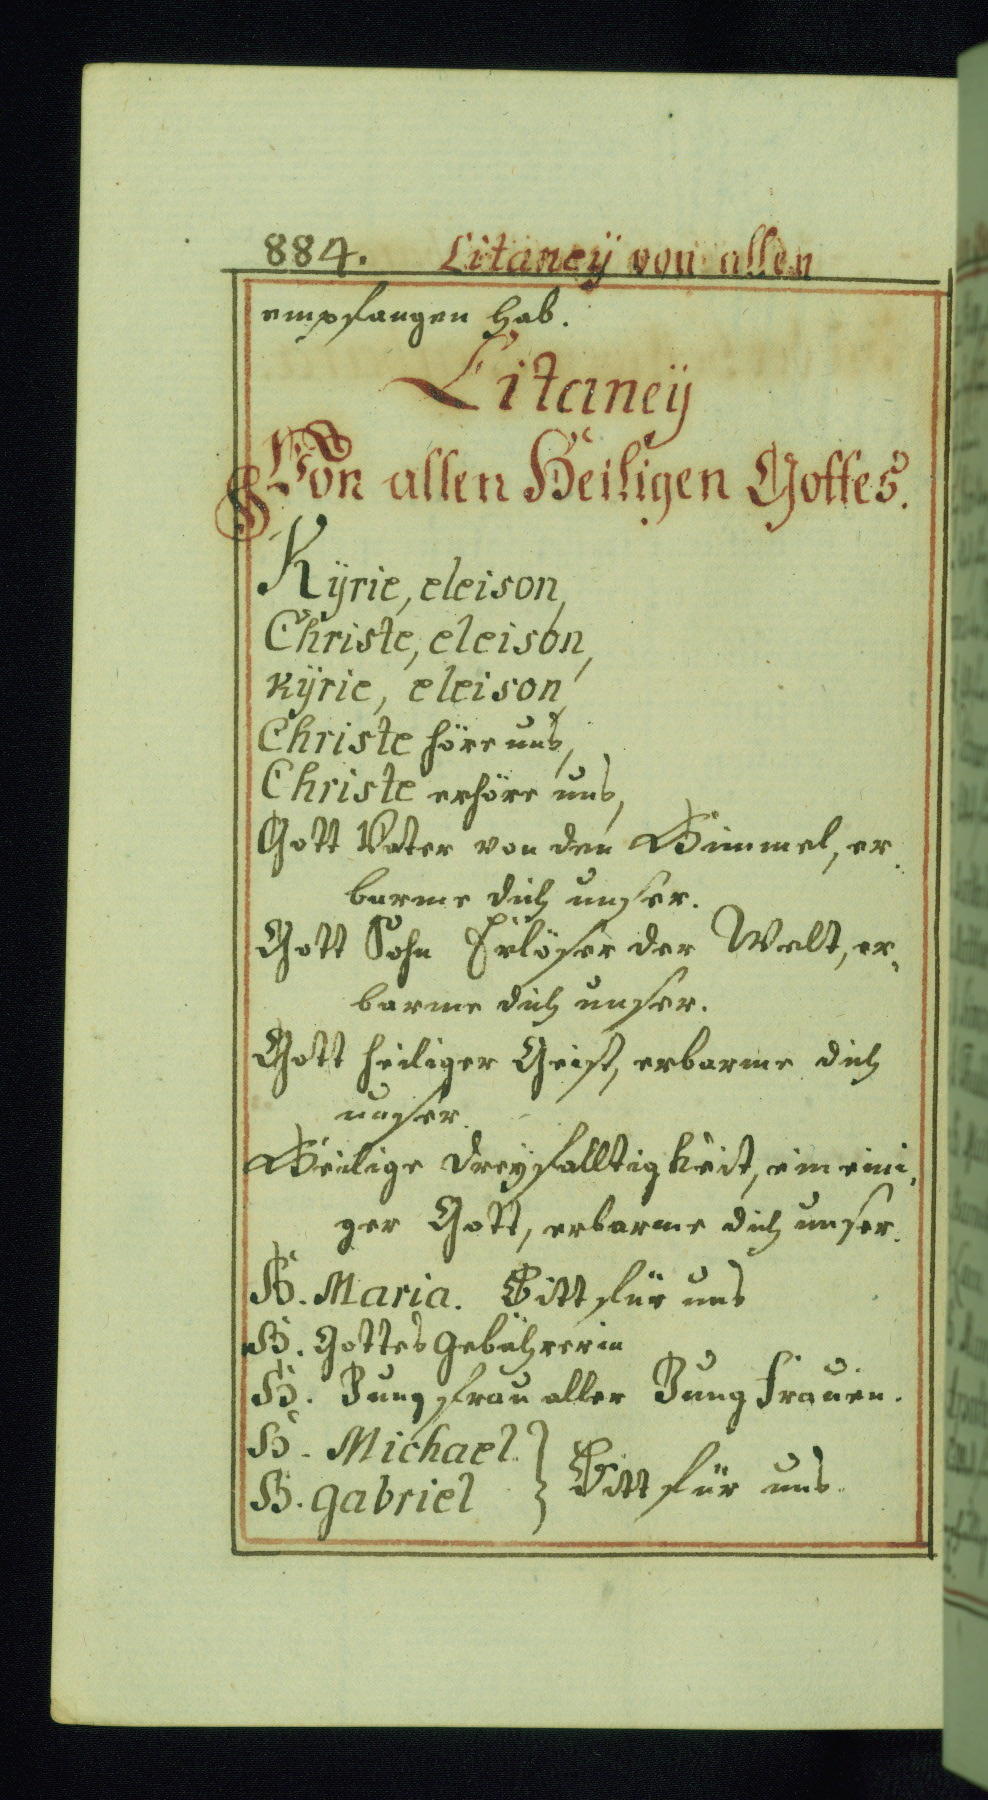 884. Litaneÿ von allen
empfangen hab.
Litaneÿ
Von allen Heiligen Gottes.
Kÿrie, eleison,
Christe, eleison,
kÿrie, eleison,
Christe höre uns,
Christe erhöre uns,
Gott Vater von den Himmel, er-
barme dich unser.
Gott Sohn Erlöser der Welt, er-
barme dich unser.
Gott heiliger Geist, erbarme dich
unser.
Heilige Dreyfalltigkeit, ein eini-
ger Gott, erbarme dich unser.
H. Maria. Bitt für uns
H. Gottes Gebährerin
H. Jungfrau aller Jungfrauen.
H. Michael } Bitt für uns
H. gabriel